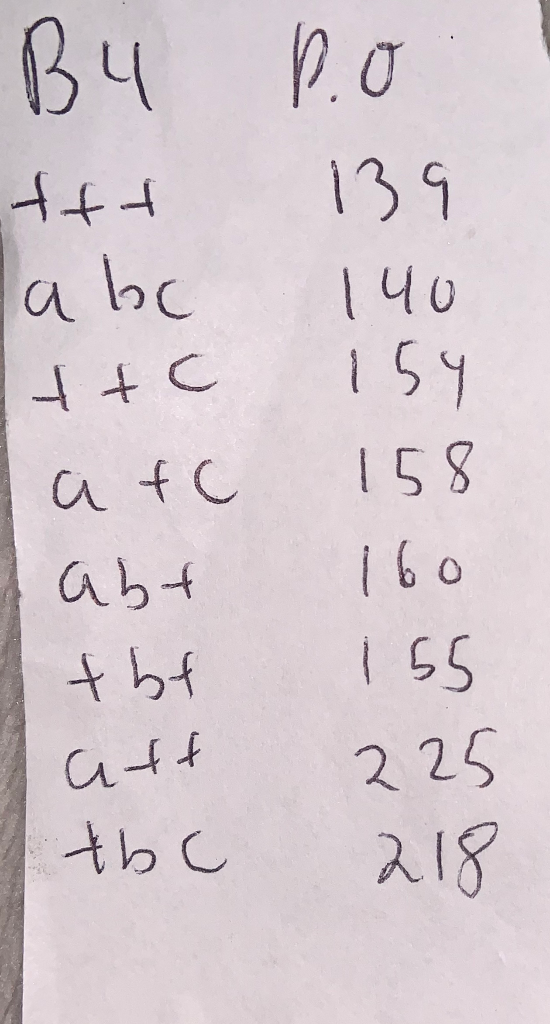 B4 P.O
+++ 139
abc 140
++c 154
a+c 158
ab+ 160
+b+ 155
a++ 225
+bc 218